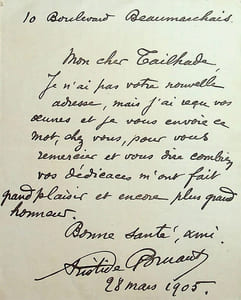 10 Boulevard Beaumarchais.
Mon cher Tailhade,
Je n'ai pas votre nouvelle
adresse, mais j'ai reçu vos
œuvres et je vous envoie ce
mot, chez vous, pour vous
remercier et vous dire combien
vos dédicaces m'ont fait
grand plaisir et encore plus grand
honneur.
Bonne santé, ami.
Aristide Bruant
28 mars 1905.